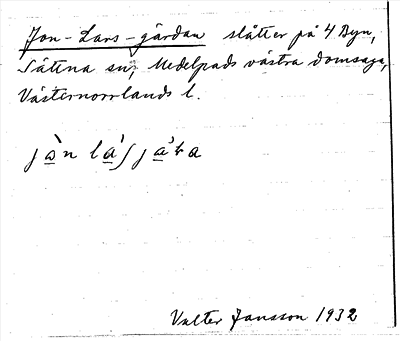 Jon-Lars-gårdan slåtter på 4 Byn,
Sättna sn, Medelpads västra domsaga,
Västernorrlands l.
Valter Jansson 1932